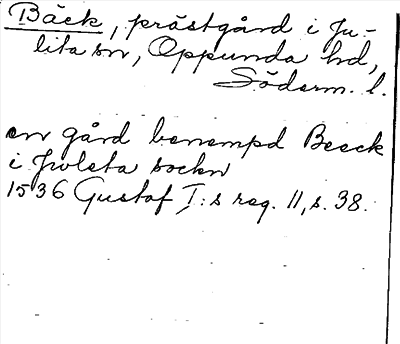 Bäck, prästgård i Ju-
lita sn, Oppunda hd,
Söderm. l.
en gård benempd Beeck
i Jwleta sockn
1536 Gustaf I:s reg. 11, s. 38.